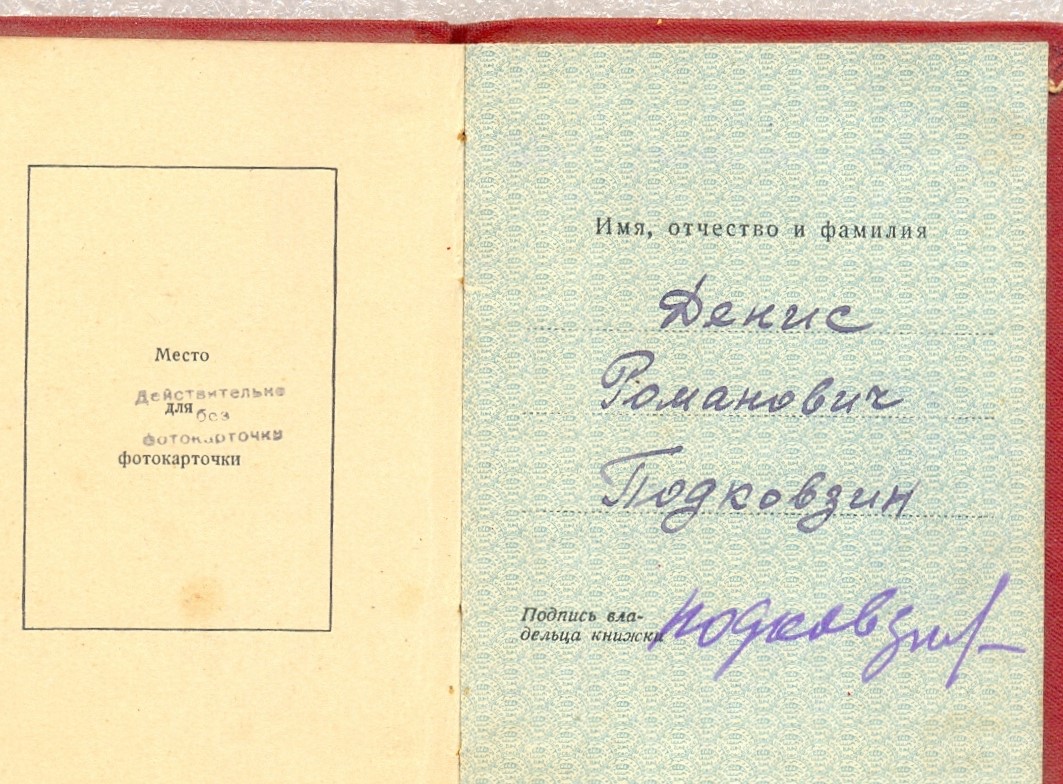 Место
Действительно
для
без
фотокарточки
фотокарточки
Имя, отчество и фамилия
Денис
Романович
Подковзин
Подпись вла-
дельца книжки
Подковзин